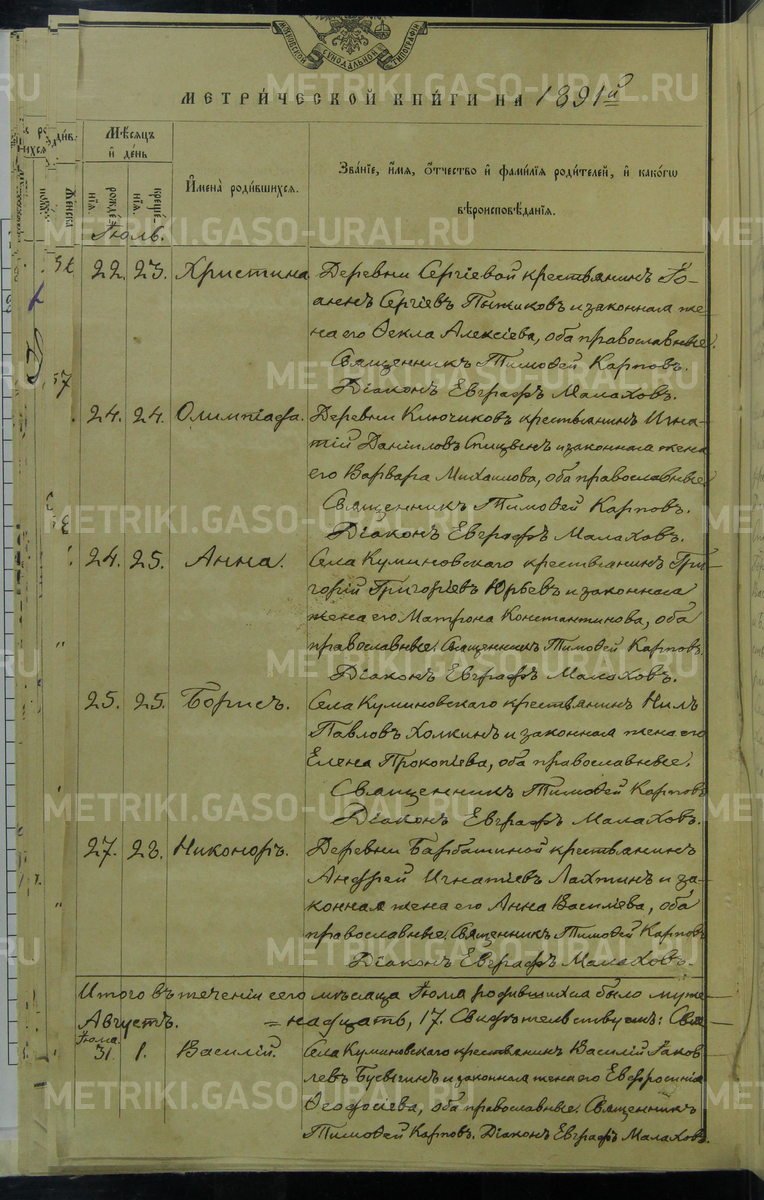 МОСКОВСКОЙ СѴНОДАЛЬНОЙ ТИПОГРАФІИ
МЕТРИ́ЧЕСКОЙ КНИ́ГИ НА 1891й
Мѣсяцъ
и҆ де́нь
рожде́нїѧ.
креще́нїѧ.
И҆мена̀ роди́вшихсѧ.
Зва́нїе, и҆́мѧ, ѻ҆́тчество и҆ фами́лїѧ роди́телей, и҆ како́гѡ
вѣроисповѣ́данїѧ.
Іюль.
22. 23. Христина. Деревни Сергіевой крестьянинъ Іо-
аннъ Сергіевъ Пыжиковъ и законная же-
на его Ѳекла Алексіева, оба православные.
Священникъ Тимоѳей Карповъ.
Діаконъ Евграфъ Малаховъ.
24. 24. Олимпіада. Деревни Ключиковъ крестьянинъ Игна-
тій Даніиловъ Спицынъ и законная жена
его Варвара Михаилова, оба православные.
Священникъ Тимоѳей Карповъ.
Діаконъ Евграфъ Малаховъ.
24. 25. Анна. Села Куминовскаго крестьянинъ Гри-
горій Григоріевъ Юрьевъ и законная
жена его Матрона Константинова, оба
православные. Священникъ Тимоѳей Карповъ.
Діаконъ Евграфъ Малаховъ.
25. 25. Борисъ. Села Куминовскаго крестьянинъ Нилъ
Павловъ Холкинъ и законная жена его
Елена Прокопіева, оба православные.
Священникъ Тимоѳей Карповъ
Діаконъ Евграфъ Малаховъ.
27. 28. Никоноръ. Деревни Барбашиной крестьянинъ
Андрей Игнатіевъ Лахтинъ и за-
конная жена его Анна Василіева, оба
православные. Священникъ Тимоѳей Карповъ
Діаконъ Евграфъ Малаховъ.
Итого въ теченіи сего мѣсяца Іюля родившихся было муже-
Августъ. =надцать, 17. Свидѣтельствуемъ: Свя-
Іюля
31. 1. Василій. Села Куминовскаго крестьянинъ Василій Іаков
левъ Бусыгинъ и законная жена его Евфросинія
Ѳеодосіева, оба православные. Священникъ
Тимоѳей Карповъ. Діаконъ Евграфъ Малаховъ.
METRIKI.GASO-URAL.RU